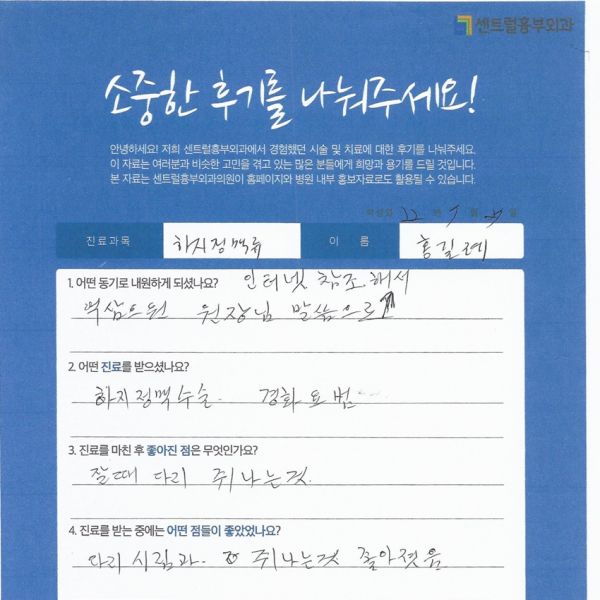 센트럴흉부외과
소중한 후기를 나눠주세요!
안녕하세요! 저희 센트럴흉부외과에서 경험했던 시술 및 치료에 대한 후기를 나눠주세요.
이 자료는 여러분과 비슷한 고민을 겪고 있는 많은 분들에게 희망과 용기를 드릴 것입니다.
본 자료는 센트럴흉부외과의원이 홈페이지와 병원 내부 홍보자료로도 활용될 수 있습니다.
작성일 22 년 월 일
진료과목 하지정맥류 이 름 홍길례
1. 어떤 동기로 내원하게 되셨나요? 인터넷 참조해서
원장님 말씀으로
2. 어떤 진료를 받으셨나요?
하지정맥수술. 경화요법
3. 진료를 마친 후 좋아진 점은 무엇인가요?
잘때 다리 쥐나는것.
4. 진료를 받는 중에는 어떤 점들이 좋았었나요?
다리시림과. 쥐나는것 좋아졌음